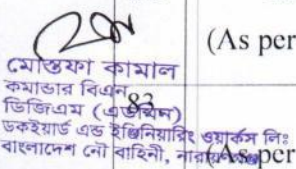 (As per
মোস্তফা কামাল
কমান্ডার বিএন
83
ডিজিএম (এডমিন)
ডকইয়ার্ড এন্ড ইঞ্জিনিয়ারিং ওয়ার্কস লিঃ
বাংলাদেশ নৌ বাহিনী,
(As per